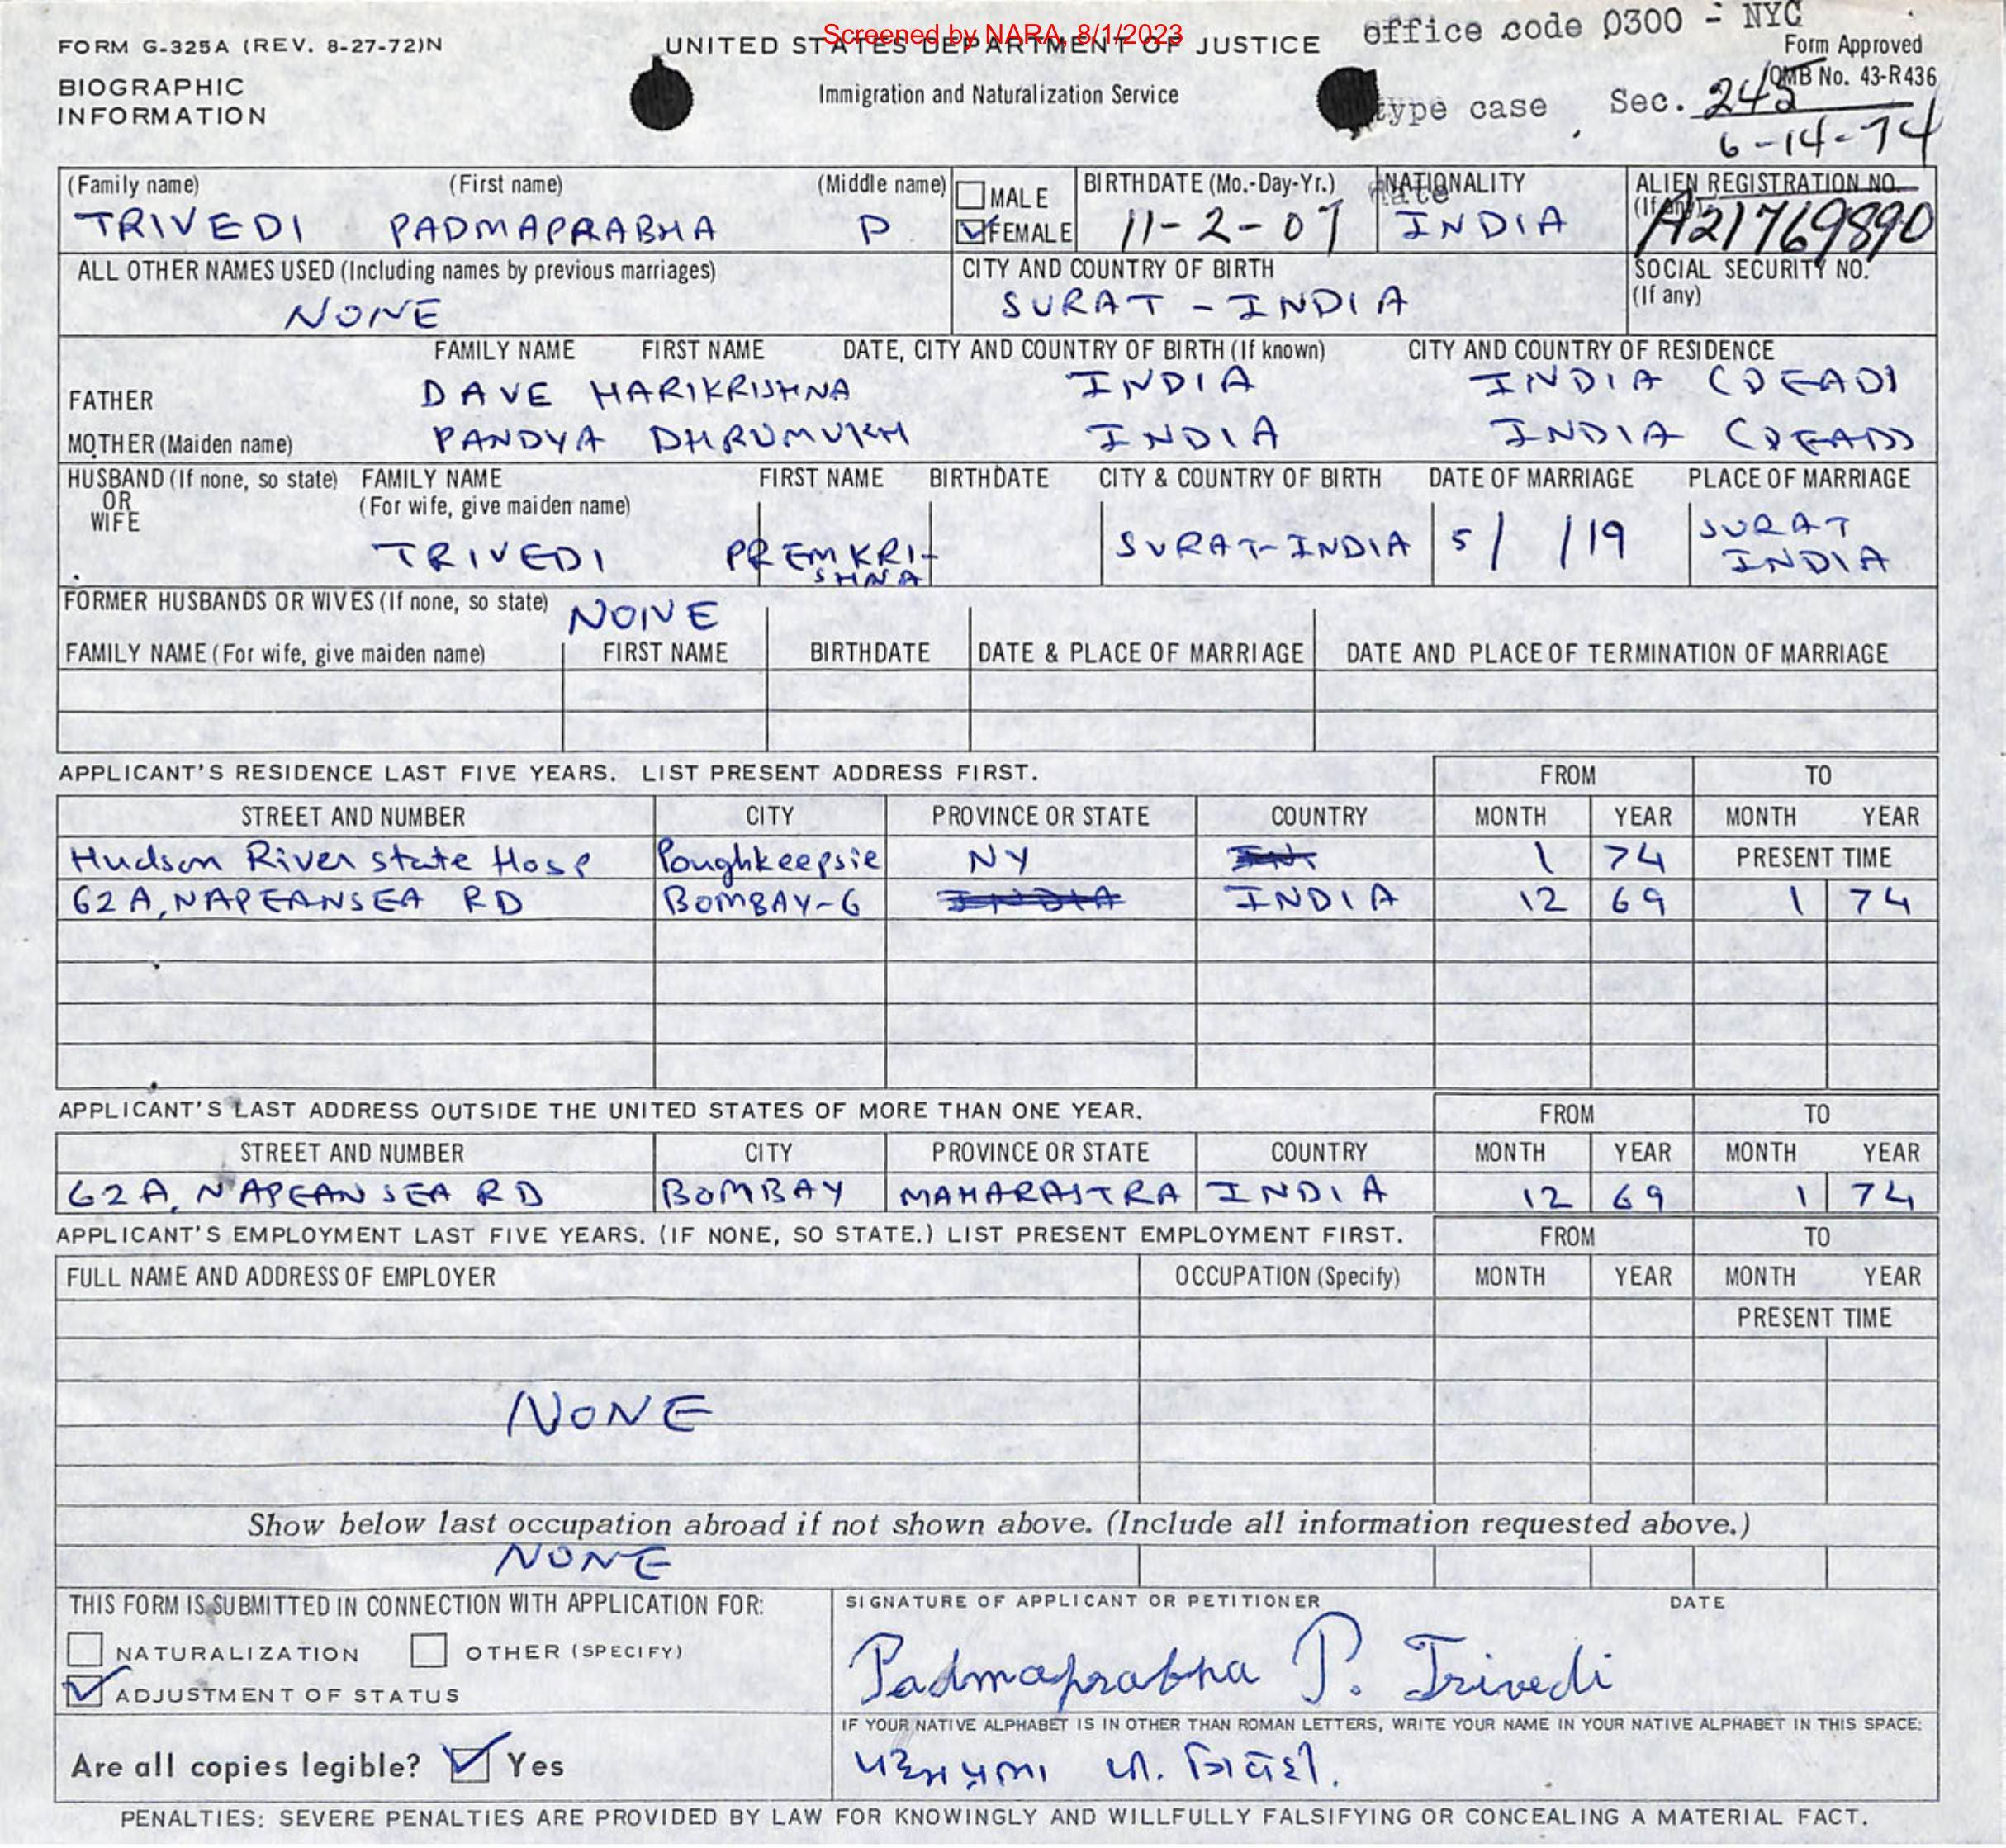 Screened by NARA, 8/1/2023
office code 0300 - NYC
FORM G-325A (REV. 8-27-72)N
UNITED STATES DEPARTMENT OF JUSTICE
Form Approved
OMB No. 43-R436
BIOGRAPHIC
INFORMATION
Immigration and Naturalization Service
type case Sec. 245
6-14-74
date
(Family name) (First name) (Middle name)
TRIVEDI PADMAPRABHA P
MALE
FEMALE
BIRTHDATE (Mo.-Day-Yr.)
11-2-07
NATIONALITY
INDIA
ALIEN REGISTRATION NO.
(If any)
A21769890
ALL OTHER NAMES USED (Including names by previous marriages)
NONE
CITY AND COUNTRY OF BIRTH
SURAT - INDIA
SOCIAL SECURITY NO.
(If any)
FAMILY NAME FIRST NAME DATE, CITY AND COUNTRY OF BIRTH (If known) CITY AND COUNTRY OF RESIDENCE
FATHER DAVE HARIKRISHNA INDIA INDIA (DEAD)
MOTHER (Maiden name) PANDYA DHRUMUKH INDIA INDIA (DEAD)
HUSBAND (If none, so state) FAMILY NAME FIRST NAME BIRTHDATE CITY & COUNTRY OF BIRTH DATE OF MARRIAGE PLACE OF MARRIAGE
OR (For wife, give maiden name)
WIFE
TRIVEDI PREMKRI-
SHNA
SURAT-INDIA 5/ /19 SURAT
INDIA
FORMER HUSBANDS OR WIVES (If none, so state) NONE
FAMILY NAME (For wife, give maiden name) FIRST NAME BIRTHDATE DATE & PLACE OF MARRIAGE DATE AND PLACE OF TERMINATION OF MARRIAGE
APPLICANT'S RESIDENCE LAST FIVE YEARS. LIST PRESENT ADDRESS FIRST. FROM TO
STREET AND NUMBER CITY PROVINCE OR STATE COUNTRY MONTH YEAR MONTH YEAR
Hudson River state Hosp Poughkeepsie NY 1 74 PRESENT TIME
62A, NAPEANSEA RD BOMBAY-6 INDIA INDIA 12 69 1 74
APPLICANT'S LAST ADDRESS OUTSIDE THE UNITED STATES OF MORE THAN ONE YEAR. FROM TO
STREET AND NUMBER CITY PROVINCE OR STATE COUNTRY MONTH YEAR MONTH YEAR
62A, NAPEAN SEA RD BOMBAY MAHARASTRA INDIA 12 69 1 74
APPLICANT'S EMPLOYMENT LAST FIVE YEARS. (IF NONE, SO STATE.) LIST PRESENT EMPLOYMENT FIRST. FROM TO
FULL NAME AND ADDRESS OF EMPLOYER OCCUPATION (Specify) MONTH YEAR MONTH YEAR
PRESENT TIME
NONE
Show below last occupation abroad if not shown above. (Include all information requested above.)
NONE
THIS FORM IS SUBMITTED IN CONNECTION WITH APPLICATION FOR:
NATURALIZATION OTHER (SPECIFY)
ADJUSTMENT OF STATUS
SIGNATURE OF APPLICANT OR PETITIONER DATE
Padmaprabha P. Trivedi
Are all copies legible? Yes
IF YOUR NATIVE ALPHABET IS IN OTHER THAN ROMAN LETTERS, WRITE YOUR NAME IN YOUR NATIVE ALPHABET IN THIS SPACE:
પદ્મપ્રભા પી. ત્રિવેદી.
PENALTIES: SEVERE PENALTIES ARE PROVIDED BY LAW FOR KNOWINGLY AND WILLFULLY FALSIFYING OR CONCEALING A MATERIAL FACT.